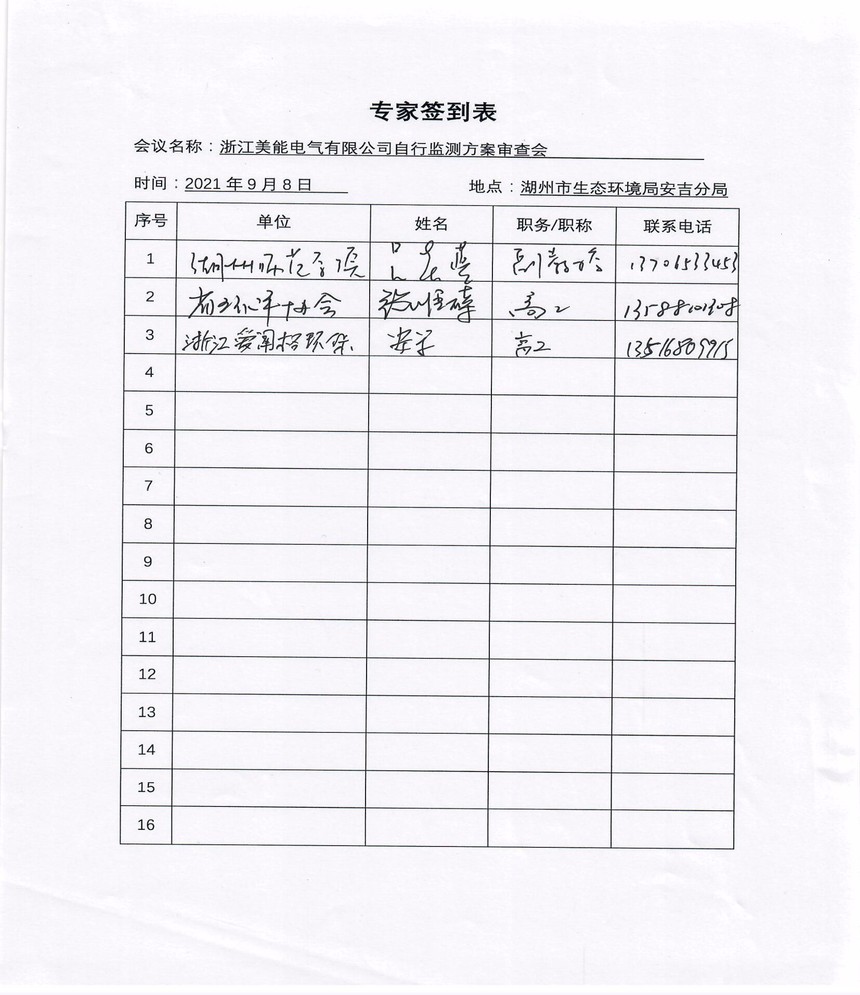 专家签到表
会议名称：浙江美能电气有限公司自行监测方案审查会
时间：2021 年 9 月 8 日 地点：湖州市生态环境局安吉分局
序号 单位 姓名 职务/职称 联系电话
1 湖州师范学院 副教授 13706533453
2 协会 高工
3 浙江 高工 13516809915
4
5
6
7
8
9
10
11
12
13
14
15
16